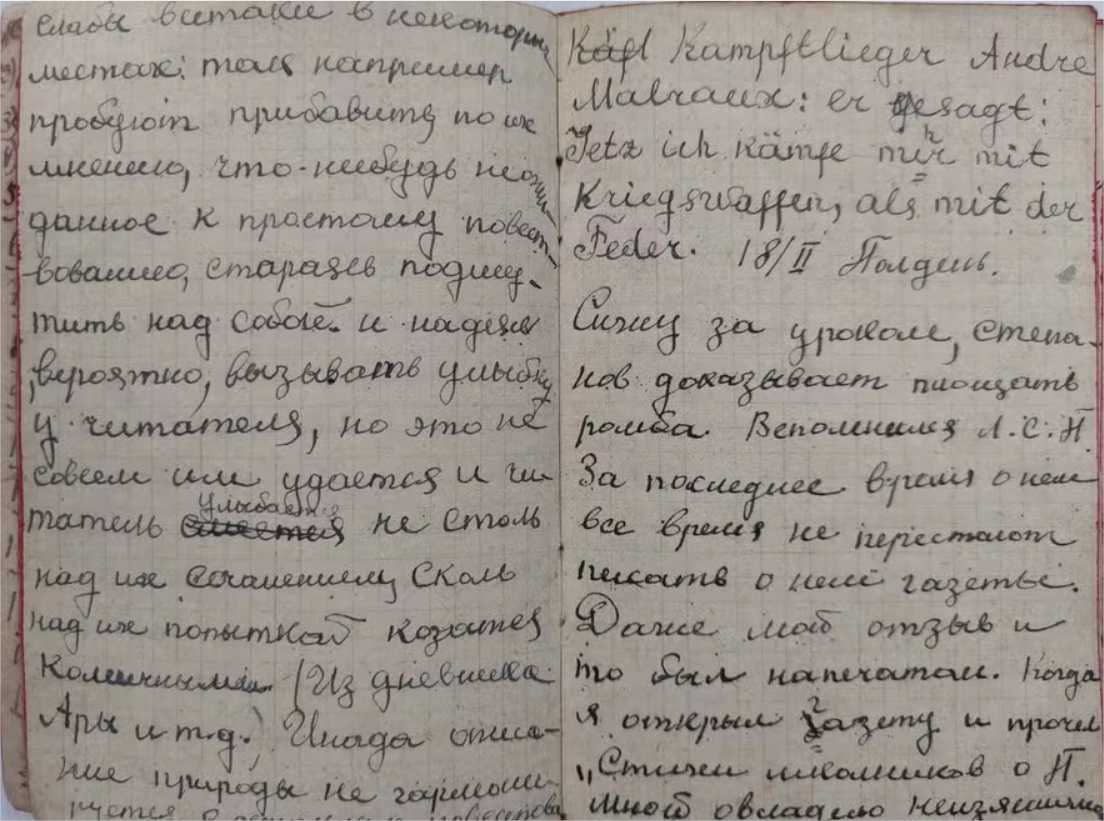 слабы всетаки в некоторых
местах: так например
пробуют прибавить по их
мнению, что-нибудь неожи-
данное к простому повест-
вованию, стараясь подшу-
тить над собой и надеясь
вероятно, вызывать улыбку
у читателя, но это не
совсем им удается и чи-
улыбается
татель смеется не столь
над их сочинением сколь
над их попыткой козатся
комичными. (Из дневника
Ары и т.д.) Иногда описа-
ние природы не гармони-
руется
Kampftlieger Andre
Malraux: er gesagt:
Jetz ich kämfe mir mit
Kriegswaffen, als mit der
Feder. 18/II Полдень.
Сижу за уроком, Степа-
нов доказывает площать
ромба. Вспомнился Л.С.П.
За последнее время о нем
все время не перестают
писать о нем газеты.
Даже мой отзыв и
то был напечатан. Когда
я открыл газету и прочел
„Стихи школьников о П.
мной овладело неизъяснимо